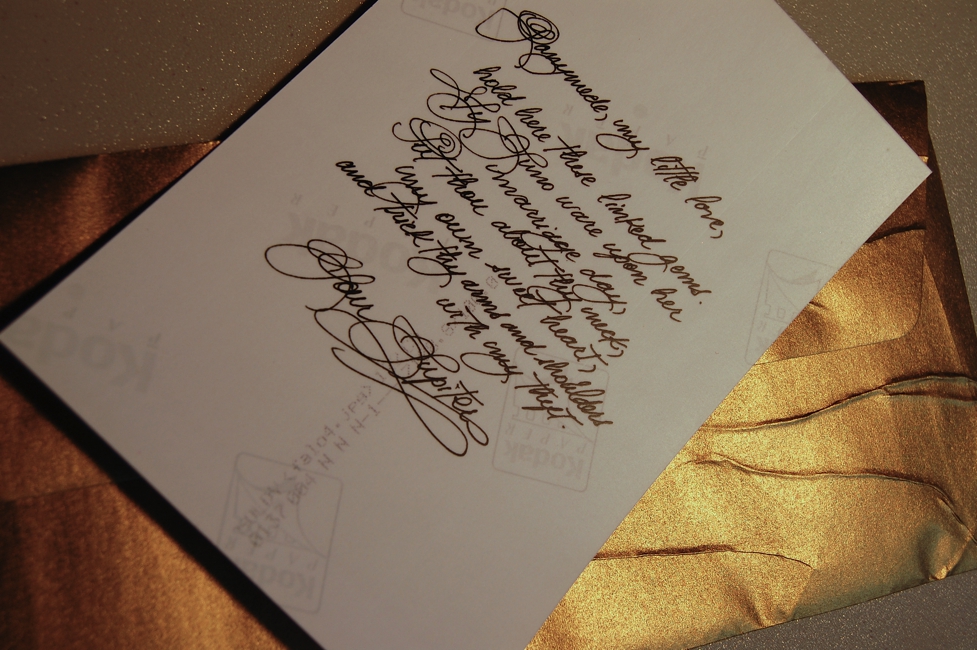 Ganymede, my little love,
hold here these linked gems.
My Juno ware upon her
marriage day,
Put thou about thy neck,
my own sweet heart,
and trick thy arms and shoulders
with my theft.
Your Jupiter
Kodak
Kodak
Kodak
Kodak